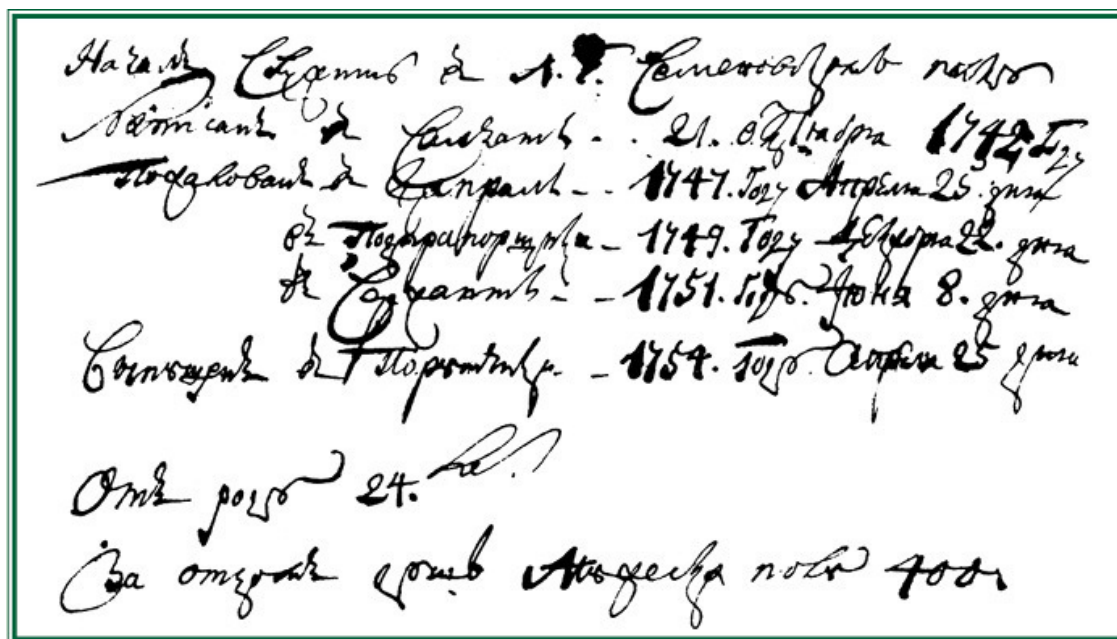 Началъ Служить въ Л. Г. Семеновскомъ полку
въ Солдаты - - 21. Октября 1742 Году
Пожалованъ въ Капралы - - 1747. Году Апреля 25. дня
въ Подпрапорщики - 1749. Году Декабря 22. дня
въ Сержанты - - 1751. Году. Июня 8. дня
Выпущенъ въ Поручики - 1754. году. Апреля 25 дня
Отъ роду 24.
За отцомъ душъ Мужеска полу 400.